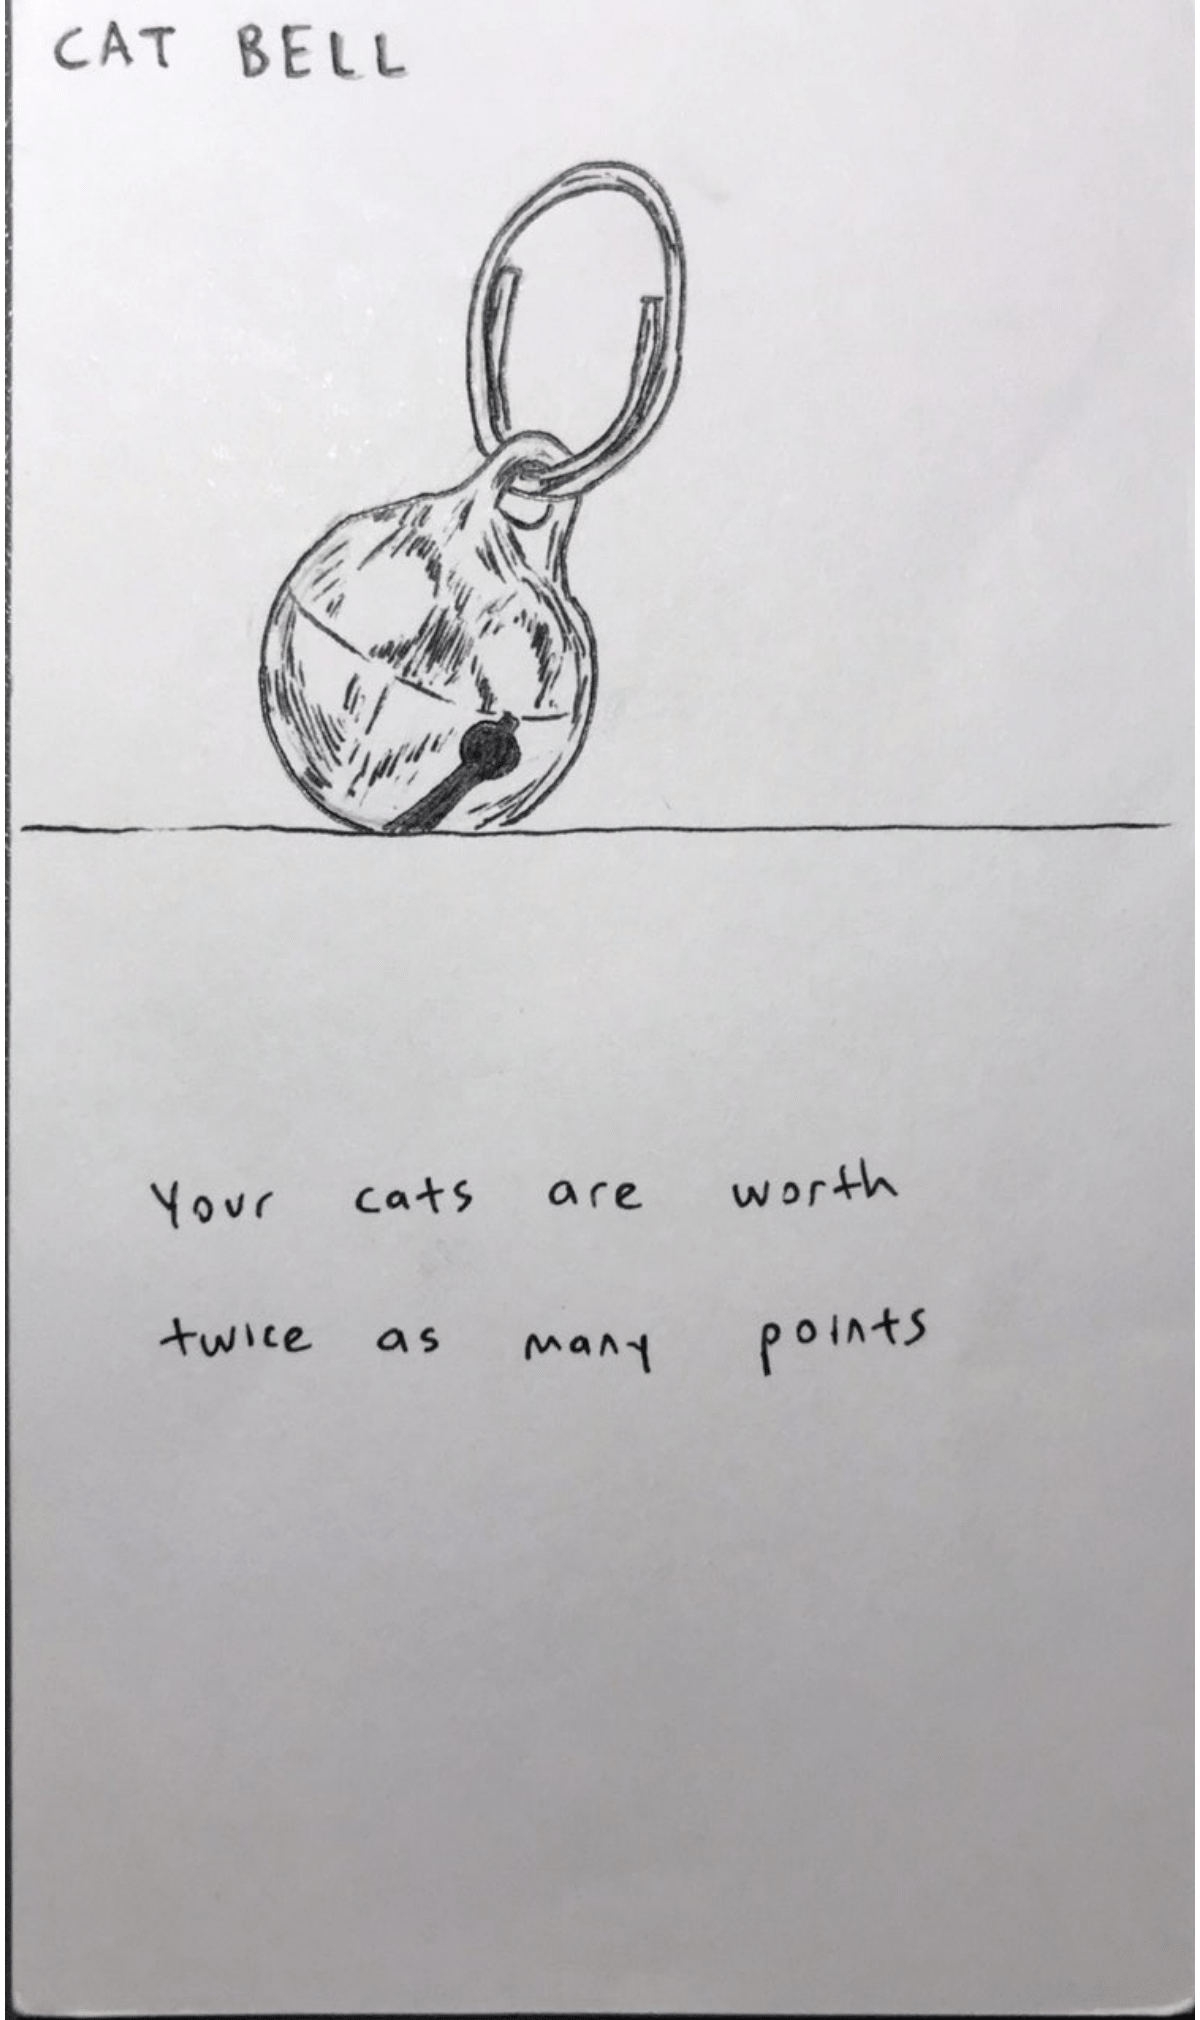 CAT BELL
Your cats are worth
twice as many points